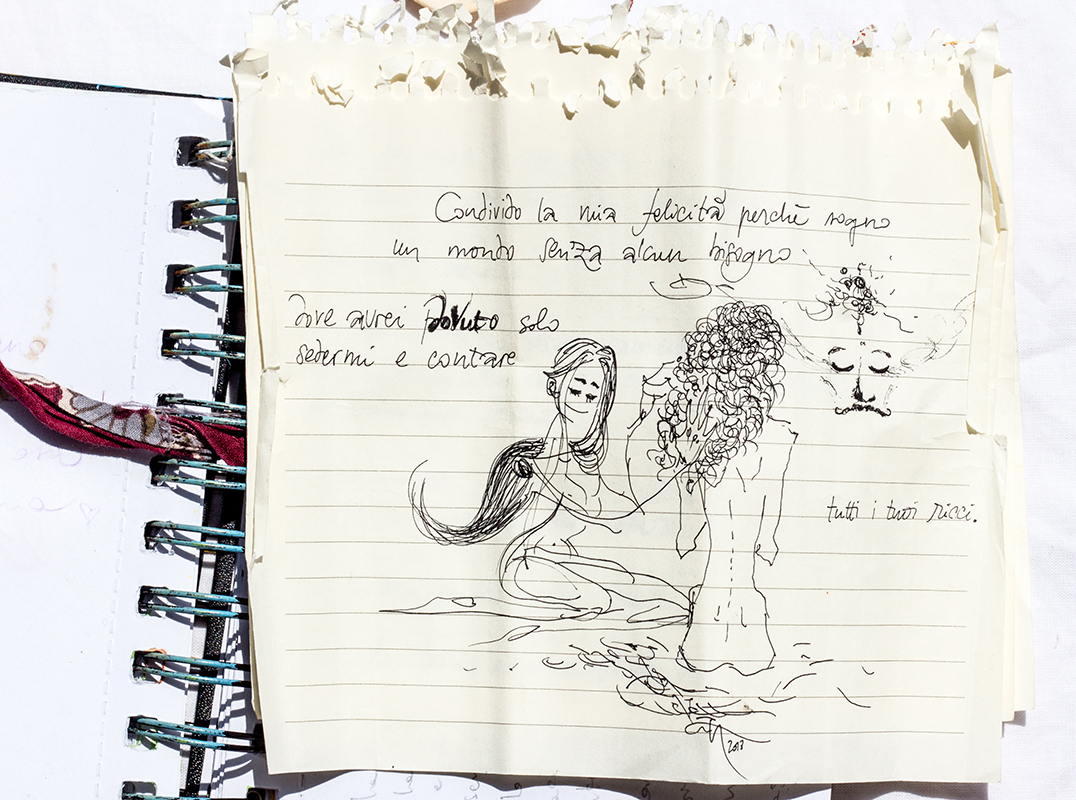 Condivido la mia felicità perchè sogno
un mondo senza alcun bisogno
dove avrei dovuto solo
sedermi e contare
tutti i tuoi ricci.
2013